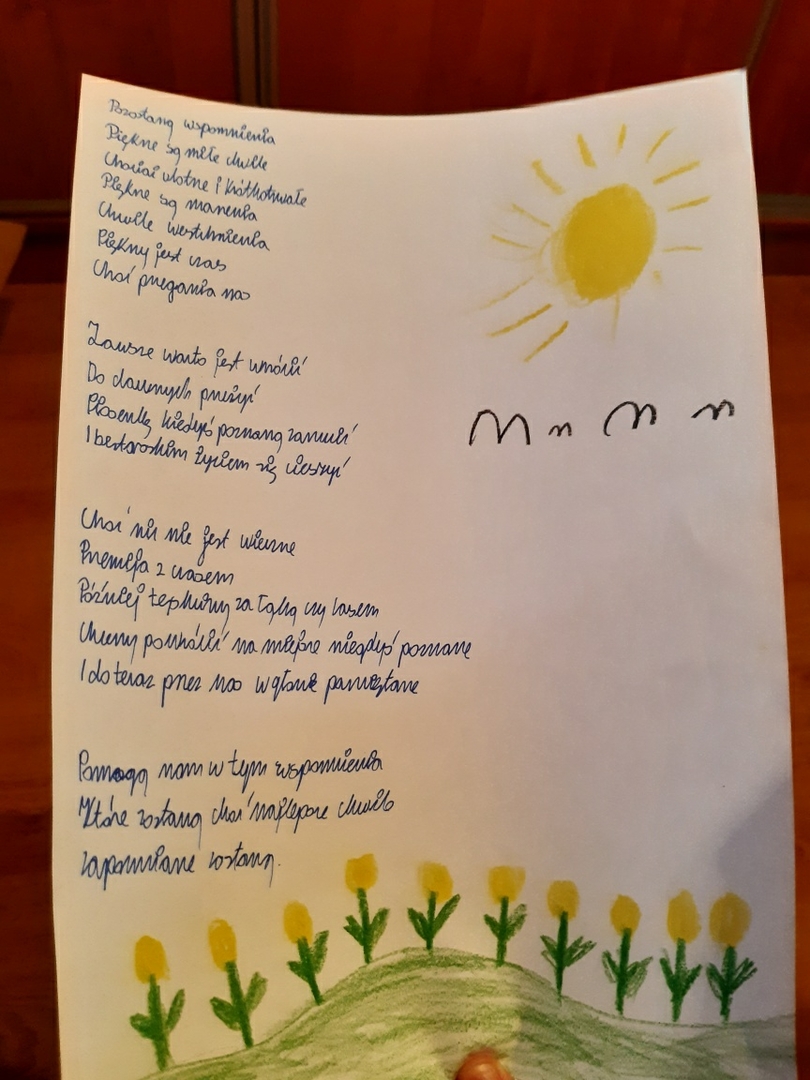 Pozostaną wspomnienia
Piękne są miłe chwile
Chociaż ulotne i krótkotrwałe
Piękne są marzenia
Chwile westchnienia
Piękny jest czas
Choć przegania nas
Zawsze warto jest wrócić
Do dawnych przeżyć
Piosenkę kiedyś poznaną zanucić
I beztroskim życiem się cieszyć
Choć nic nie jest wieczne
Przemija z czasem
Później tęsknimy za łąką czy lasem
Chcemy powrócić na miejsce niegdyś poznane
I do teraz przez nas w głowie pamiętane
Pomogą nam w tym wspomnienia
Które zostaną choć najlepsze chwile
zapomniane zostaną.